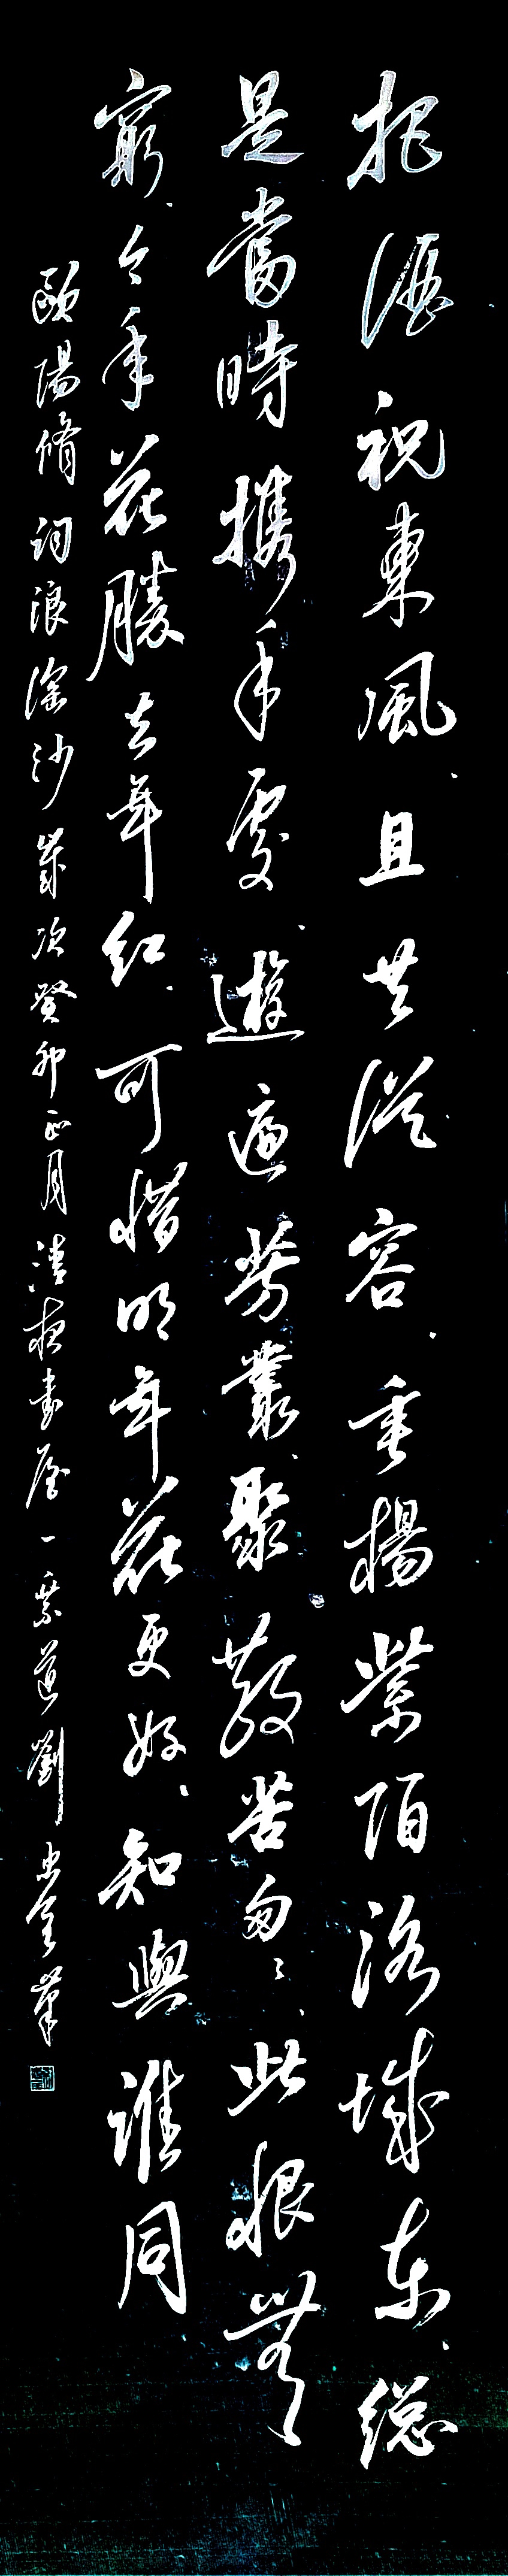 把酒祝東風、且共從容、垂楊紫陌洛城東、總
是當時攜手處、遊遍芳叢、聚散苦匆〻、此恨無
窮、今年花勝去年紅、可惜明年花更好、知與誰同
歐陽脩詞浪淘沙歲次癸卯正月書屋一道劉忠筆